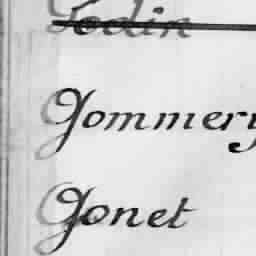 Godin
Gommery
Gonet